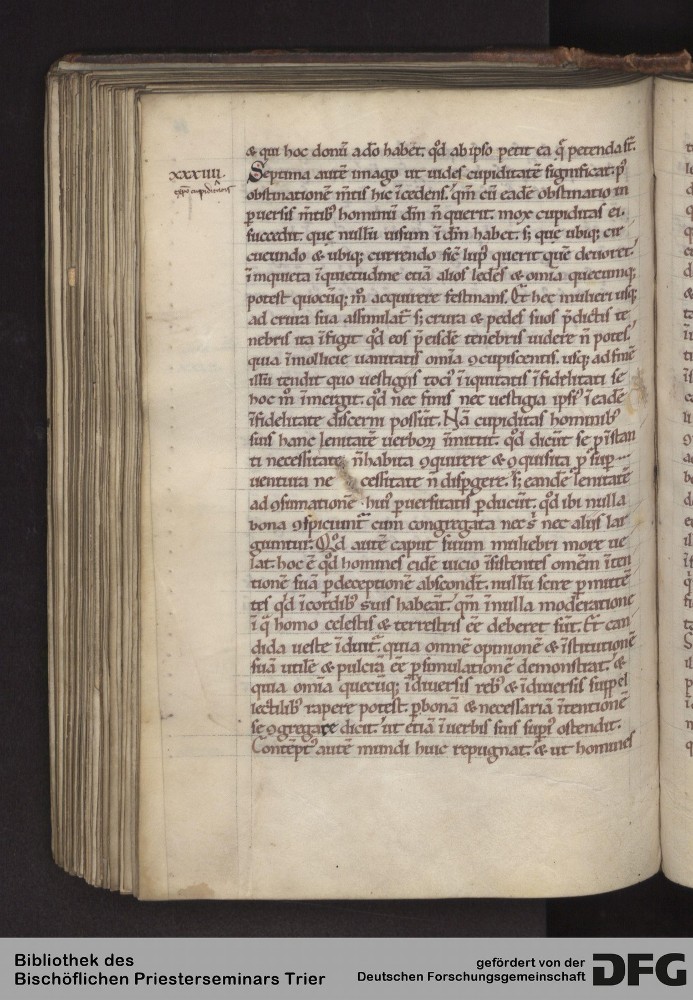 & qui hoc donū a dō habet. qd̄ ab ipso petit ea q̄ petenda st̄.
xxxiiii.
Septima autē imago ut uides cupiditatē significat. pꝰ
obstinationē m̄tis hic īcedens. qm̄ cū eadē obstinatio in
ꝑuersis m̄tibꝰ hominū dm̄ n̄ querit. mox cupiditas ei.
succedit. que nullū uisum ī dm̄ habet. s; que ubiq; cir
cueundo & ubiq; currendo sic̄ lupꝰ querit quē deuoret.
īmquieta īquietudine etiā alios ledēs & omīa quecumq;
potest quocūq; m̄ acquirere festinans. Et hec mulieri usq;
ad crura sua assimilat̄. s; crura & pedes suos p̄dictis te
nebris ita īfigit qd̄ eos p̄ eisdē tenebris uidere n̄ potes.
quia ī mollicie uanitatis omīa ꝯcupiscentis. usq; ad finē
illū tendit quo uestigiis tociꝰ īiquitatis īfidelitati se
hoc m̄ īmergit. qd̄ nec finis nec uestigia ipsiꝰ ī eadē
īfidelitate discerni possūt. Nā cupiditas hominibꝰ
suis hanc lenitatē uerboꝝ īmittit. qd̄ dicūt se ꝑ īstan
ti necessitate n̄ habita ꝯquirere & ꝯquisita ꝑ sup
uentura ne cessitate n̄ dispgere. s; eandē lenitatē
ad ꝯsumationē huiꝰ ꝑuersitatis ꝑducūt. qd̄ ibi nulla
bona ꝯspiciunt̄ cum congregata nec s̄ nec aliis lar
giuntur. Qd̄ autē caput suum muliebri more ue
lat. hoc ē qd̄ homines eidē uicio īsistentes omēm īten
tionē suā ꝑ deceptionē abscondt̄. nullū scire ꝑmitten
tes qd̄ ī cordibꝰ suis habeāt. qm̄ ī nulla moderatione
ī q̄ homo celestis & terrestris ēē deberet sūt. Et can
dida ueste īduit̄. quia omnē opinionē & īstitutionē
suā utilē & pulcrā ēē ꝑ simulationē demonstrat. &
quia omīa quecūq; ī diuersis rebꝰ & ī diuersis suppel
lectilibꝰ rapere potest. ꝑ bonā & necessariā ītentionē
se ꝯgregare dicit. ut etiā ī uerbis suis supiꝰ ostendit.
Contēptꝰ autē mundi huic repugnat. & ut homines
Bibliothek des
Bischöflichen Priesterseminars Trier
gefördert von der
Deutschen Forschungsgemeinschaft
DFG